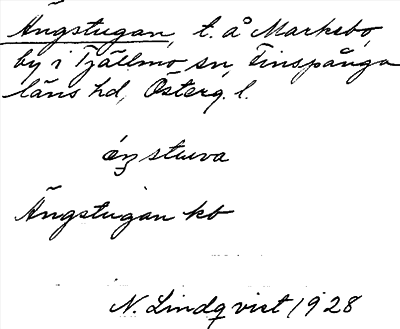 Ängstugan, t. å Marksbo,
by i Tjällmo sn, Finspånga
läns hd, Österg. l.
Ängstugan kb
N. Lindqvist 1928